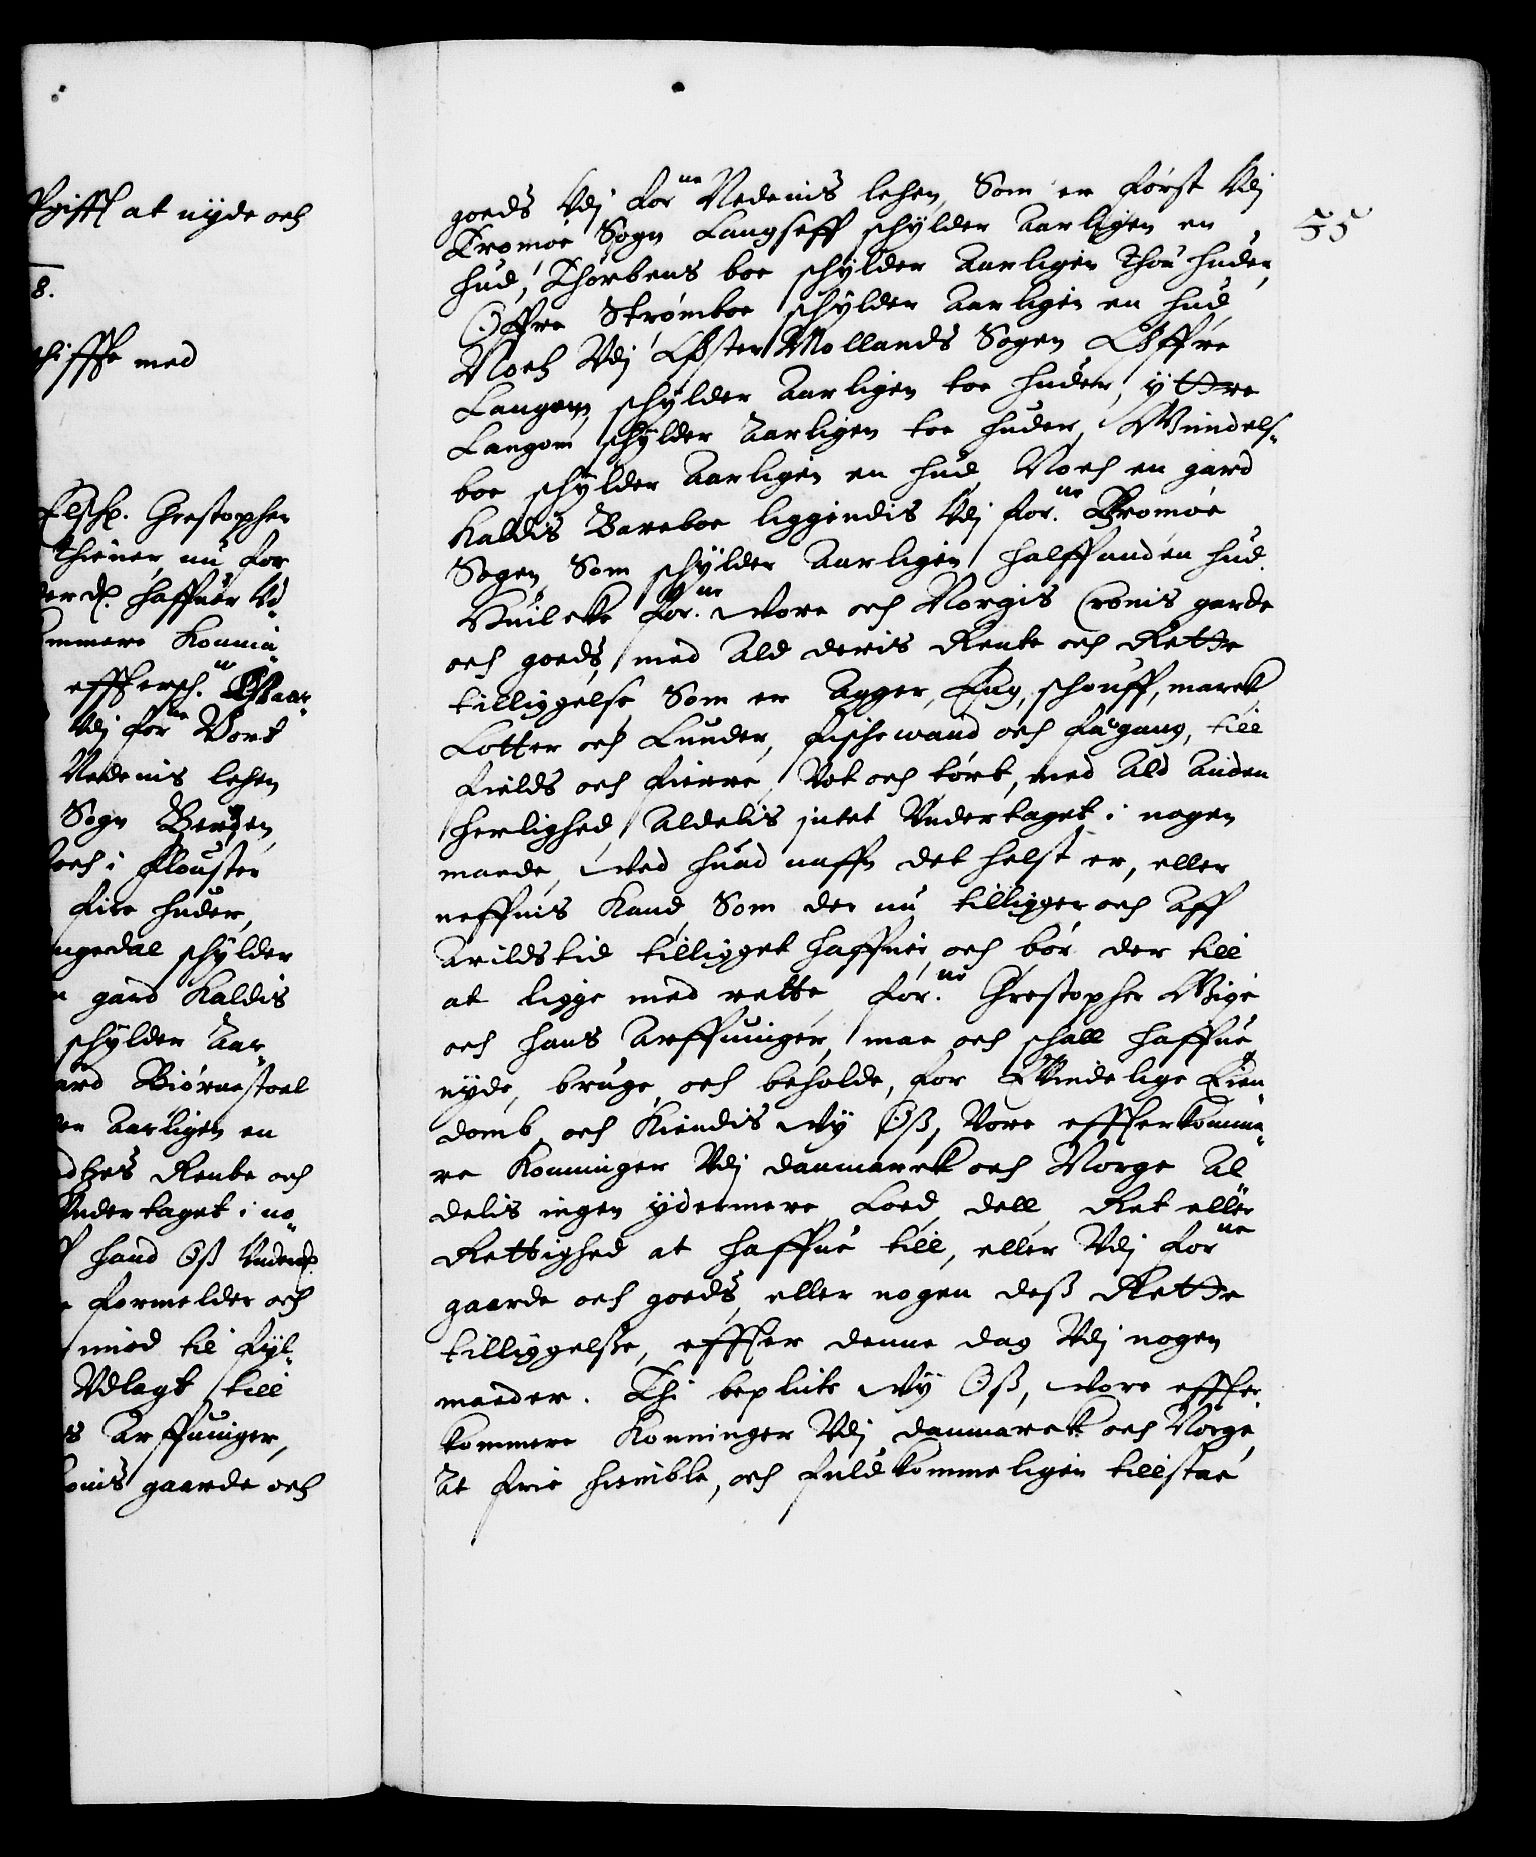 Vgifft at nyde och
8.
schiffte med
Elsch. Chrestopher
thiener, nu for
der ch. haffuer Vd
kommere Konni„
effthersch.ne Gaar„
Vdj forne Vort
Nedenis lehen
Sogn Bergen,
och i Flouster
fire huder,
ngedal schylder
n gard Kaldis
schylder Aar„
ard Biørnestoel
der Aarligen en
dtzes Rente och
Vndertaget i no„
hand Oß Vnderd.
formelder och
mind til fyl„
Vdlagt till
s Arffuinger,
onis gaarde och
55
goeds Vdj forne Nedenis lehen, Som er først Vdj
Tromøe Sogn Langseff schylder Aarligen en
hud, Thorbens boe schylder Aarligen thou huder,
Øffre Strømboe schylder Aarligen en hud
Noch Vdj Øster Mollands Sogen Øffre
Langom schylder Aarligen toe huder, ytthre
Langom schylder Aarligen toe huder, Windels„
boe schylder Aarligen en hud, Noch en gård
Kaldis Bareboe liggendis Vdj for.ne Tromøe
Sogen, Som schylder Aarligen halffanden hud.
Huilcke for.ne Wore och Norgis Cronis garde
och goeds, med Ald deris Rente och Rette
tilliggelse, Som er Agger, Eng, schouff, marck
Lotter och Lunder, fischewand och fægang, till
fields och fierre, Vot och tört, med Ald Anden
herlighed, Aldelis intet Vndertaget i nogen
maade, Wed huad naffn det helst er, eller
neffnis Kand, Som der nu tilligger och Aff
Arildstid tilligget haffuer, och bør der till
at ligge med rette, for.ne Chrestopher Wige
och hans Arffuinger, maa och schall haffue
nyde, bruge, och beholde, for Ewindelige Eien„
domb, och Kiendis Wy Oß, Vore effterkomme„
re Konninger Vdj danmarck och Norge Al„
delis ingen ydermere Loed, dell, Ret eller
Rettighed at haffue till, eller Vdj forne
gaarde och goeds, eller nogen deß Rette
tilliggelße, effther denne dag Vdj nogen
maader. Thi beplicte Wy Oß, Wore effther„
kommere Konninger Vdj danmarck och Norge,
At frie hiemble, och fuldkommeligen tillstae